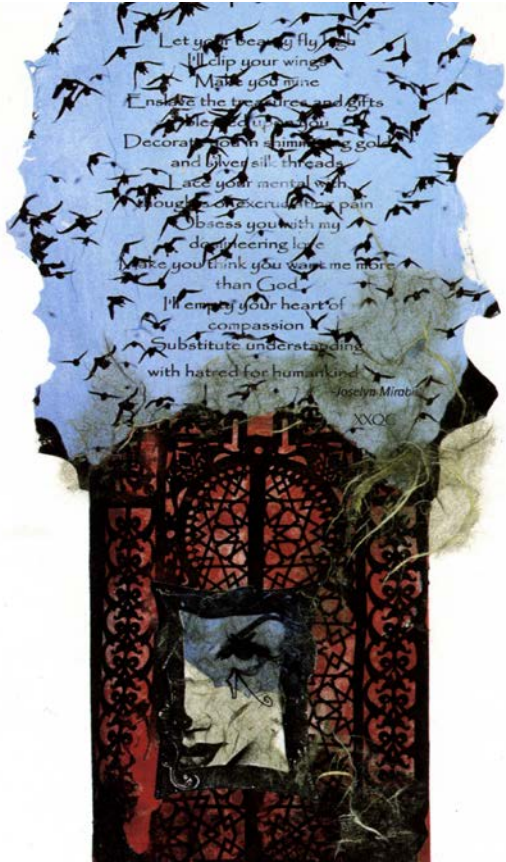 Let your beauty fly high
I'll clip your wings
Make you mine
Enslave the treasures and gifts
blessed upon you
Decorate you in shimmering gold
and silver silk threads
Lace your mental with
thoughts of excruciating pain
Obsess you with my
domineering love
Make you think you want me more
than God
I'll empty your heart of
compassion
Substitute understanding
with hatred for humankind
-Joselyn Mirabi
XXQC